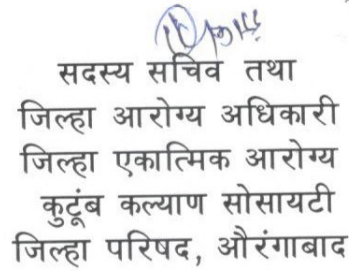 सदस्य सचिव तथा
जिल्हा आरोग्य अधिकारी
जिल्हा एकात्मिक आरोग्य
कुटूंब कल्याण सोसायटी
जिल्हा परिषद, औरंगाबाद